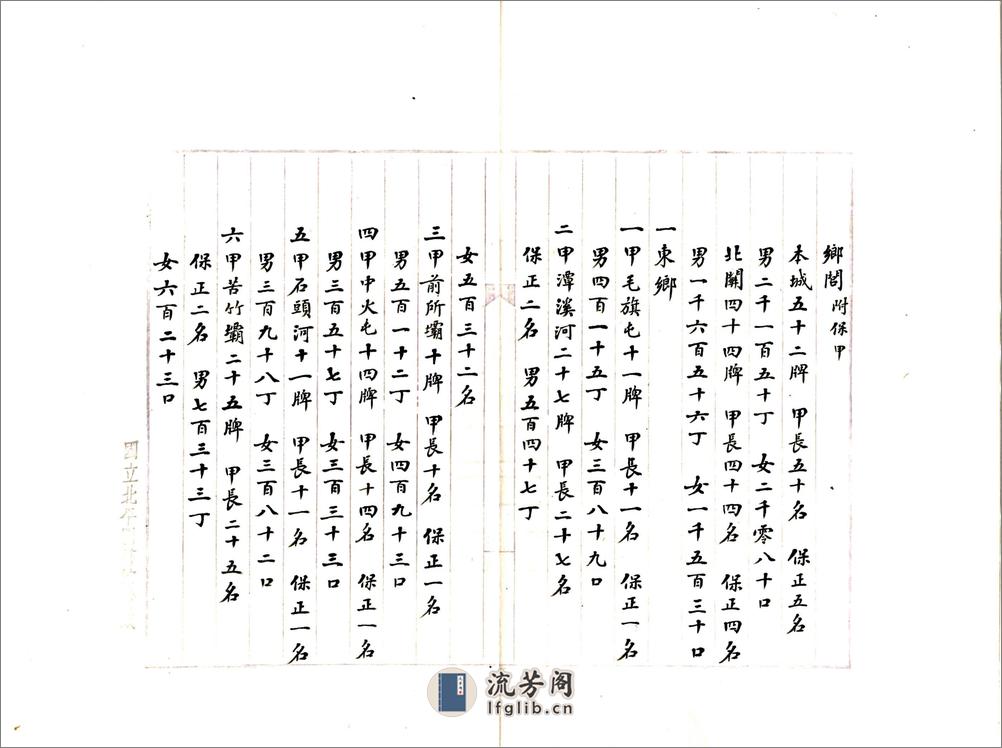 鄉閭附保甲
本城五十二牌 甲長五十名 保正五名
男二千一百五十丁 女二千零八十口
北關四十四牌 甲長四十四名 保正四名
男一千六百五十六丁 女一千五百三十口
一東鄉
一甲毛旗屯十一牌 甲長十一名 保正一名
男四百一十五丁 女三百八十九口
二甲潭溪河二十七牌 甲長二十七名
保正二名 男五百四十七丁
女五百三十二名
三甲前所壩十牌 甲長十名 保正一名
男五百一十二丁 女四百九十三口
四甲中火屯十四牌 甲長十四名 保正一名
男三百五十七丁 女三百三十三口
五甲石頭河十一牌 甲長十一名 保正一名
男三百九十八丁 女三百八十二口
六甲苦竹壩二十五牌 甲長二十五名
保正二名 男七百三十三丁
女六百二十三口
國立北平
流芳阁
lfglib.cn